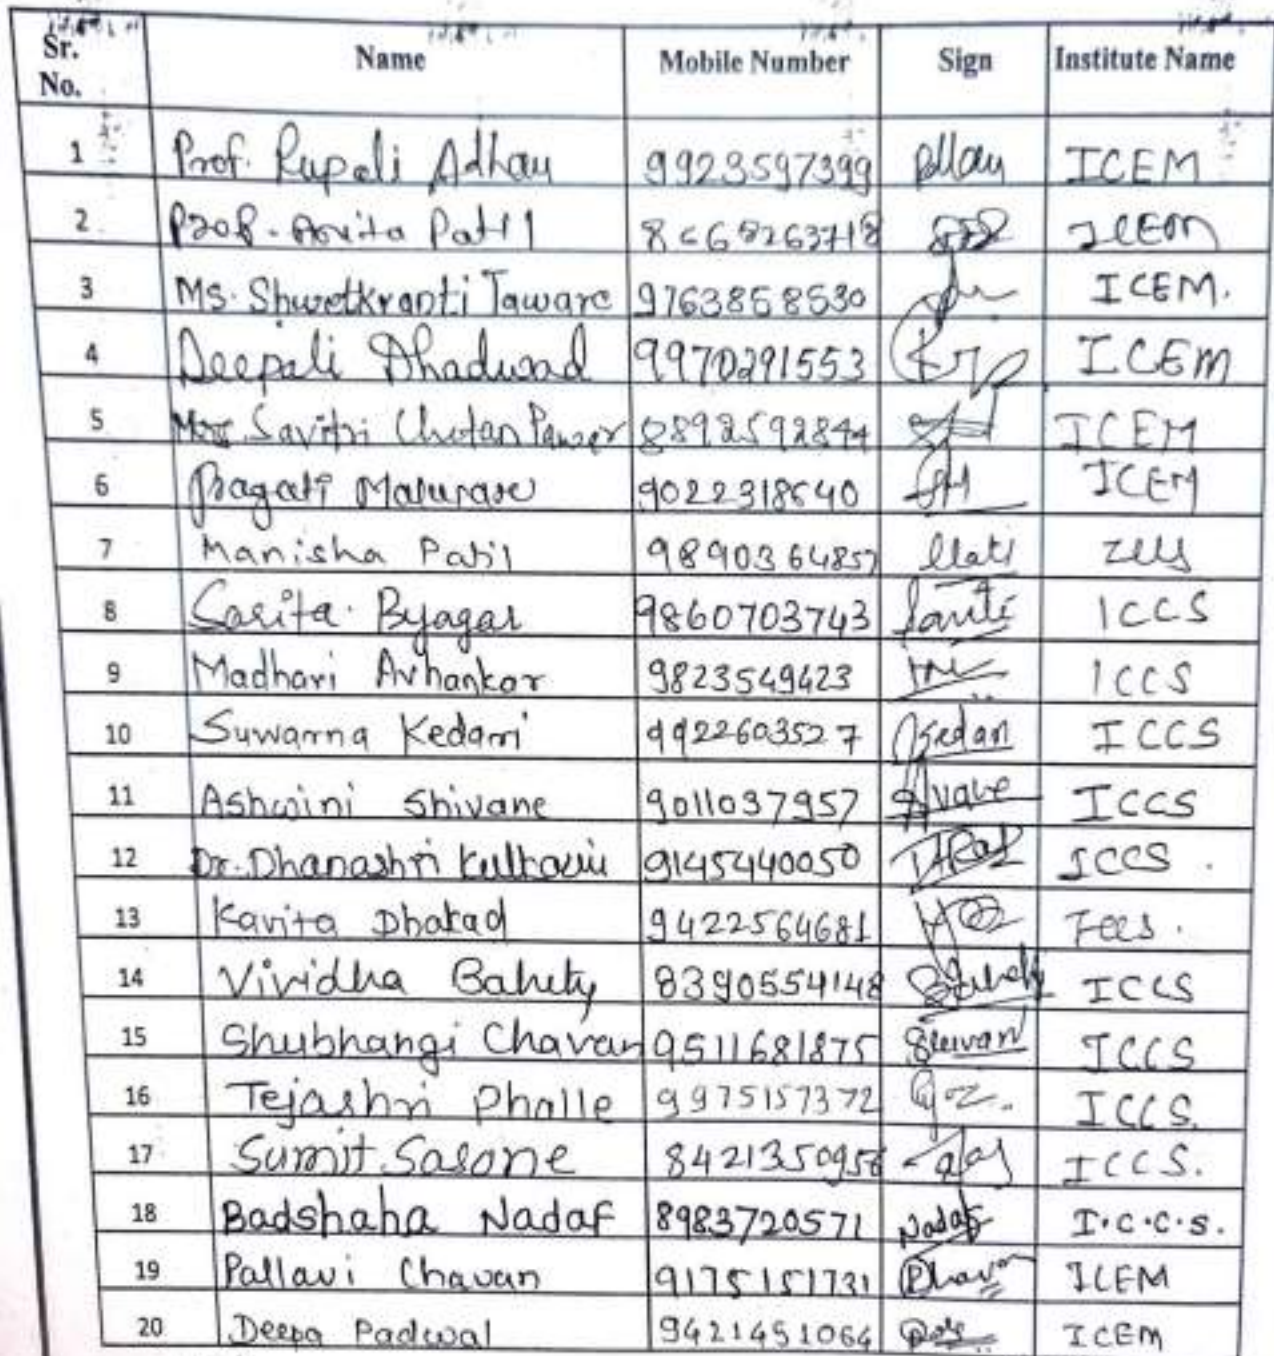 Sr. No. Name Mobile Number Sign Institute Name
1 Prof. Rupali Adhau 9923597399 ICEM
2 Prof. Patil ICEM
3 Ms. Shwetkranti Taware 9763858530 ICEM.
4 Deepali Dhadwad 9970291553 ICEM
5 Savitri Chetan Pawar 8892592844 ICEM
6 Pragati ICEM
7 Manisha Patil 9890364857
8 Sarita Byagar 9860703743 ICCS
9 Madhavi Avhankar 9823549423 ICCS
10 Suwarna Kedari 9922603527 Kedari ICCS
11 Ashwini Shivane 9011037957 ICCS
12 Dr. Dhanashri Kulkarni 9145440050 ICCS.
13 Kavita Dhakad 9422564681
14 Vividha Bahety 8390554148 ICCS
15 Shubhangi Chavan 9511681875 ICCS
16 Tejashri Phalle 9975157372 ICCS.
17 Sumit Sasane ICCS.
18 Badshaha Nadaf 8983720571 Nadaf I.C.C.S.
19 Pallavi Chavan 9175151731 ICEM
20 Deepa Padwal 9421451064 ICEM